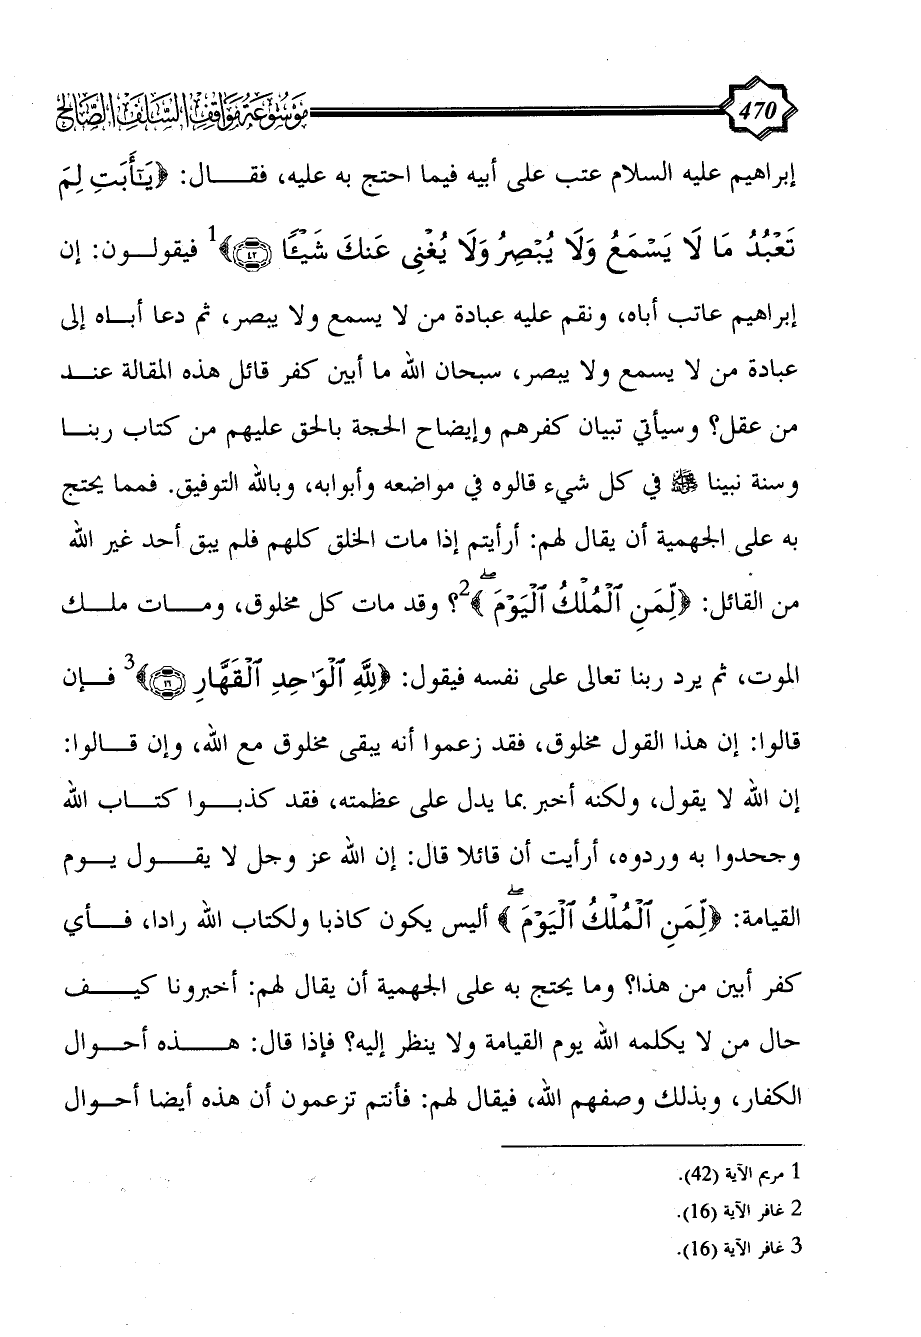 موسوعة مواقف السلف الصالح 470
إبراهيم عليه السلام عتب على أبيه فيما احتج به عليه، فقـــال: ﴿يَٰٓأَبَتِ لِمَ
تَعْبُدُ مَا لَا يَسْمَعُ وَلَا يُبْصِرُ وَلَا يُغْنِى عَنكَ شَيْـًٔا ﴿٤٢﴾﴾1 فيقولــون: إن
إبراهيم عاتب أباه، ونقم عليه عبادة من لا يسمع ولا يبصر، ثم دعا أبــاه إلى
عبادة من لا يسمع ولا يبصر، سبحان الله ما أبين كفر قائل هذه المقالة عنـــد
من عقل؟ وسيأتي تبيان كفرهم وإيضاح الحجة بالحق عليهم من كتاب ربنــا
وسنة نبينا ﷺ في كل شيء قالوه في مواضعه وأبوابه، وبالله التوفيق. فمما يحتج
به على الجهمية أن يقال لهم: أرأيتم إذا مات الخلق كلهم فلم يبق أحد غير الله
من القائل: ﴿لِّمَنِ ٱلْمُلْكُ ٱلْيَوْمَۖ﴾2؟ وقد مات كل مخلوق، ومـــات ملــك
الموت، ثم يرد ربنا تعالى على نفسه فيقول: ﴿لِلَّهِ ٱلْوَٰحِدِ ٱلْقَهَّارِ ﴿١٦﴾﴾3 فــإن
قالوا: إن هذا القول مخلوق، فقد زعموا أنه يبقى مخلوق مع الله، وإن قـــالوا:
إن الله لا يقول، ولكنه أخبر بما يدل على عظمته، فقد كذبــوا كتـــاب الله
وجحدوا به وردوه، أرأيت أن قائلا قال: إن الله عز وجل لا يقـــول يــوم
القيامة: ﴿لِّمَنِ ٱلْمُلْكُ ٱلْيَوْمَۖ﴾ أليس يكون كاذبا ولكتاب الله رادا، فــأي
كفر أبين من هذا؟ وما يحتج به على الجهمية أن يقال لهم: أخبرونا كيــف
حال من لا يكلمه الله يوم القيامة ولا ينظر إليه؟ فإذا قال: هـــذه أحــوال
الكفار، وبذلك وصفهم الله، فيقال لهم: فأنتم تزعمون أن هذه أيضا أحــوال
1 مريم الآية (42).
2 غافر الآية (16).
3 غافر الآية (16).